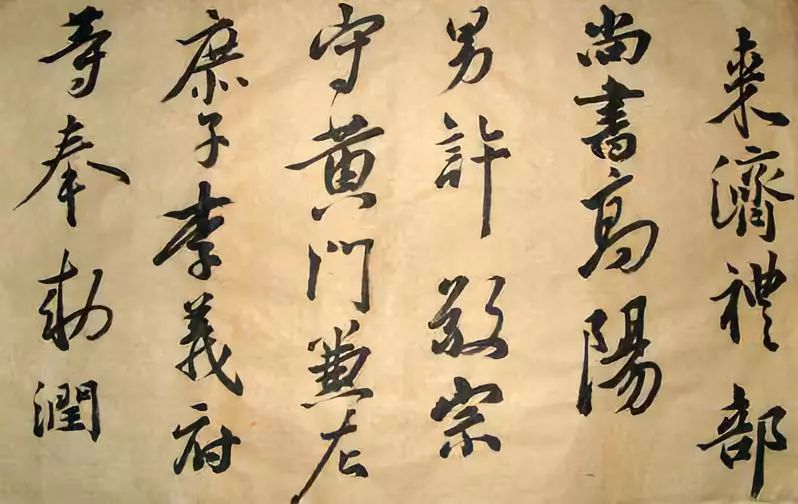 来濟禮部
尚書高陽
男許敬宗
守黄門兼左
庶子李義府
等奉勅潤